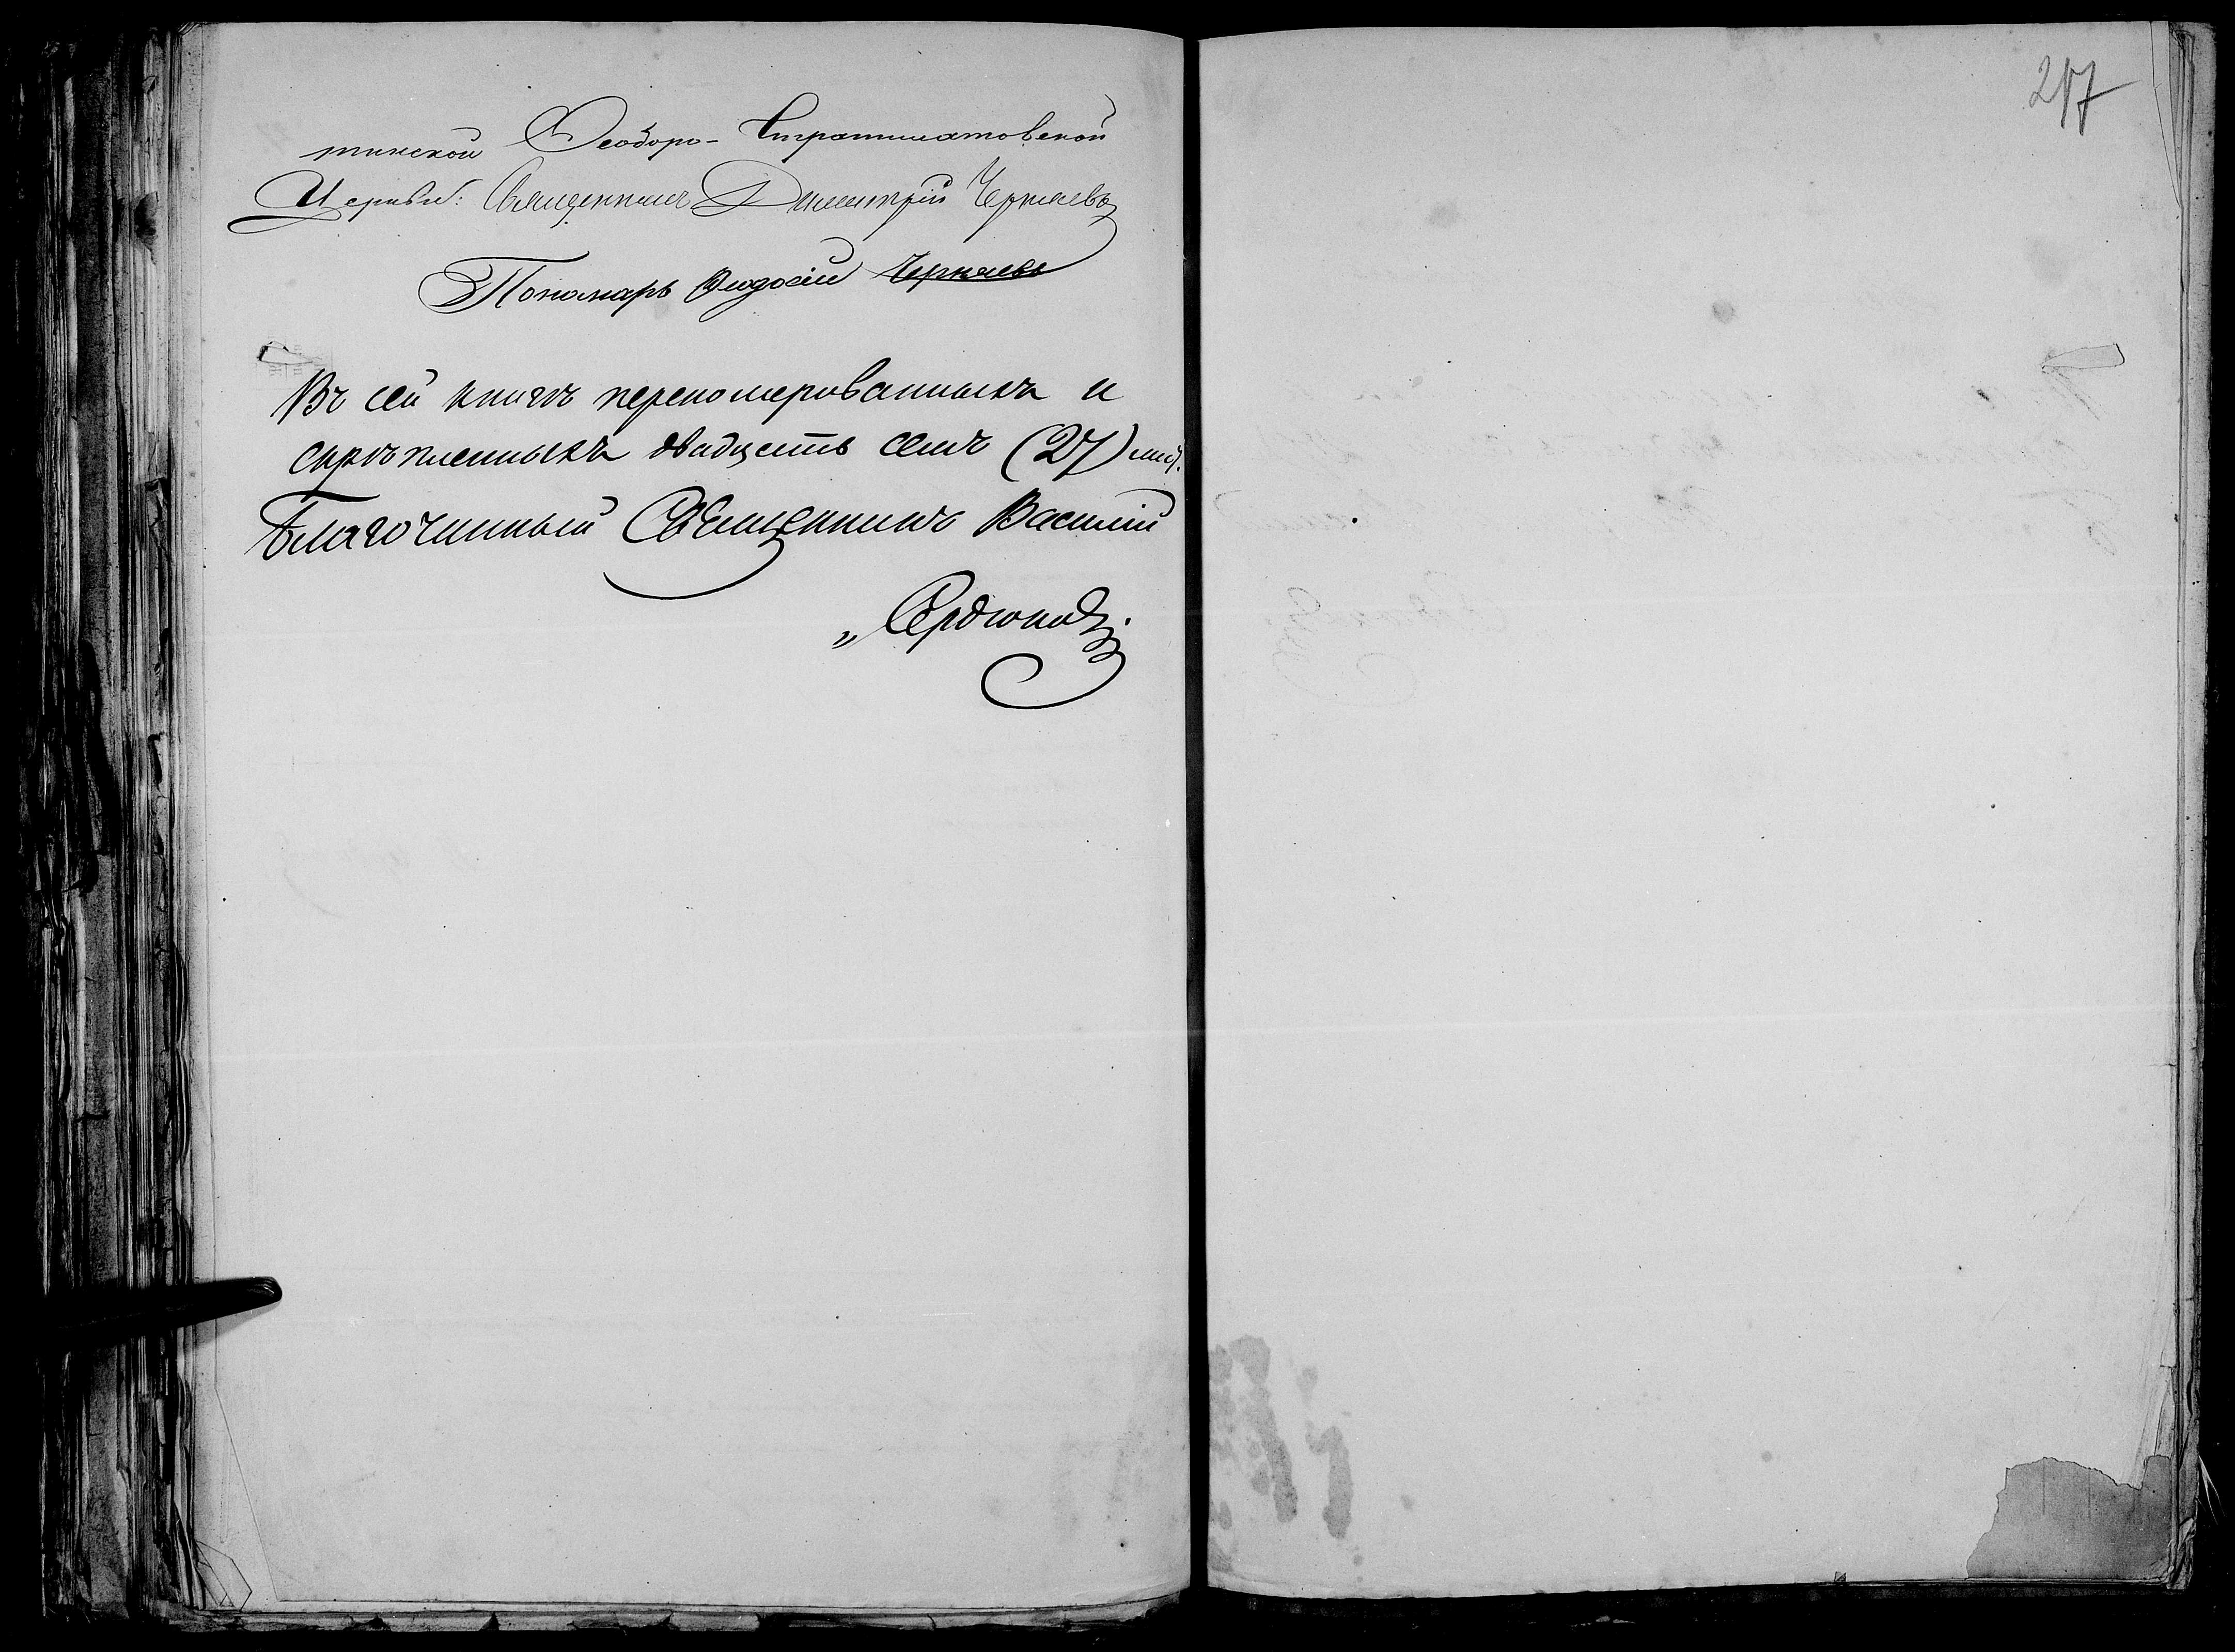 тинской Ѳеодоро-Стратилатовской
Церкви: Священникъ Димитрій Черняевъ
Пономарь Ѳеодосій Черняевъ
Въ сей книгѣ перепомерованныхъ и
скрѣпленныхъ двадцать семь (27) лис.
Благочинный Священникъ Василій
Сердюковъ
217